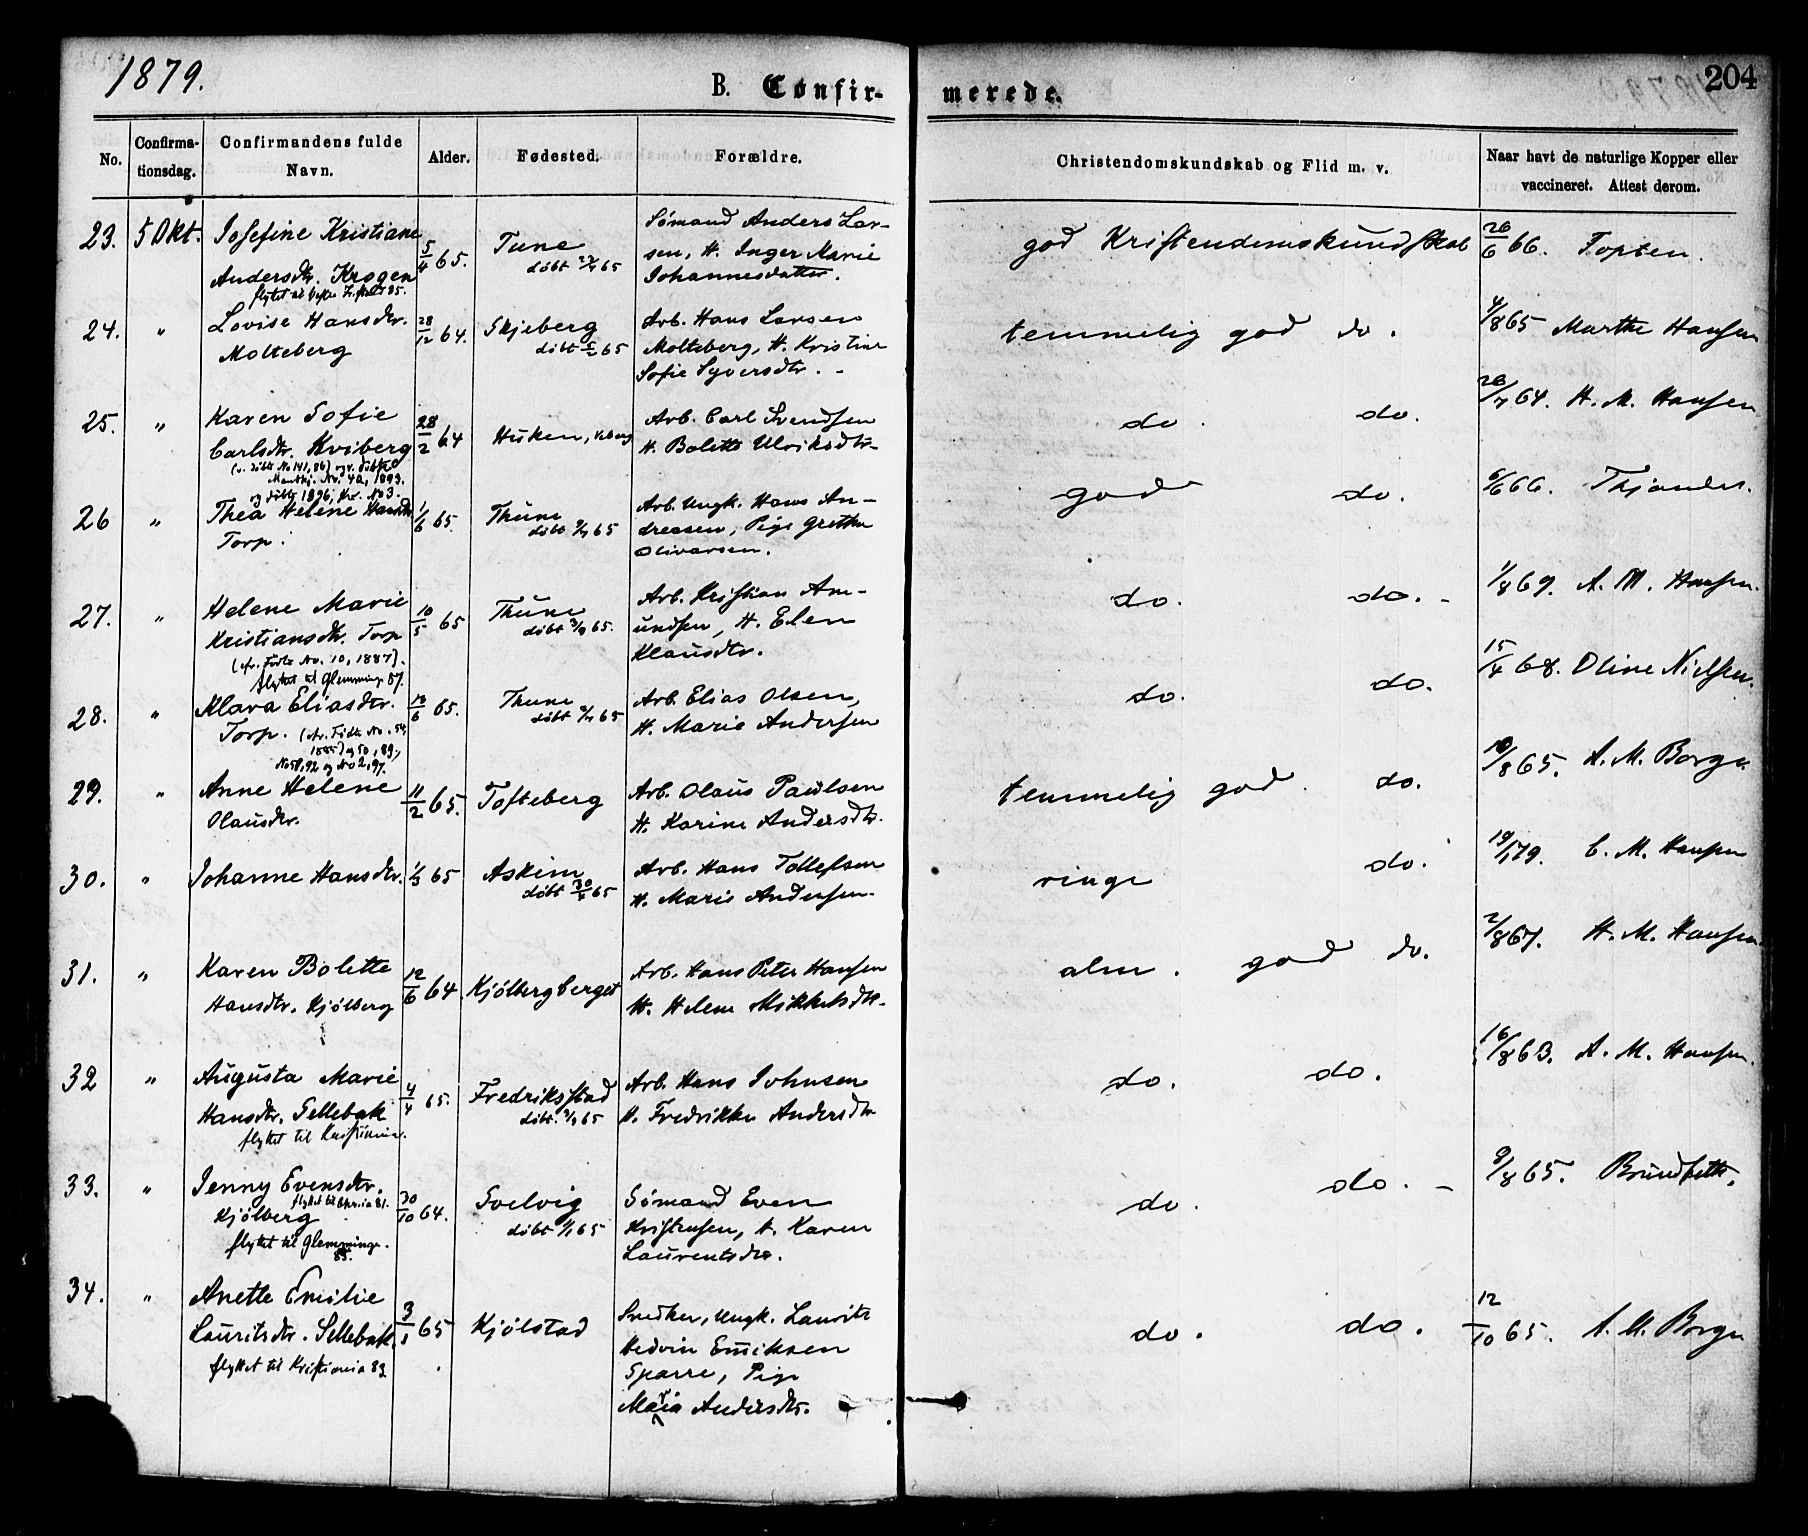 1879.
B. Confir-
merede.
204
No.
Confirma-
tionsdag.
Confirmandens fulde
Navn.
Alder.
Fødested.
Forældre.
Christendomskundskab og Flid m. v.
Naar havt de naturlige Kopper eller
vaccineret. Attest derom.
23. 5 Okt. Josefine Kristiane
Andersdtr. Krogen
flyttet til
5/4 65.
Tune
døbt 65
Sømand Anders Lar-
sen, H. Inger Marie
Johannesdatter.
god Kristendomskundskab
26/6 66. Topten.
24. " Lovise Hansdtr.
Molteberg
28/12 64.
Skjeberg
døbt 5/2 65
Arb. Hans Larsen
Molteberg, H. Kristine
Sofie Syversdtr. -
temmelig god do.
4/8 65 Marthe Hansen
25. " Karen Sofie
Carlsdtr. Kviberg
(v. døbte No 141, 86) og v. døbte
No. 42, 1893.
og døbte 1896, No 3.
28/2 64
Huken,
Arb. Carl Svendsen
H. Bolette Ulriksdtr.
do. do.
26/7 64. H. M. Hansen
26 " Thea Helene Hansdtr.
Torp.
1/6 65.
Thune
døbt 9/7 65
Arb. Ungk. Hans An-
dreasen, Pige Grethe
Olivarsen.
god do.
6/6 66.
27. " Helene Marie
Kristiansdtr. Torp
(cfr. Fødte No. 10, 1887).
flyttet til Glemminge 87.
10/5 65
Thune
døbt 3/9 65.
Arb. Kristian Am-
undsen, H. Elen
Klausdtr.
do. do. -
1/8 69. A. M. Hansen.
28. " Klara Eliasdtr.
Torp. (cfr. Fødte No. 54,
og 50, 89,
No 58, 92 og No 2, 97.
65.
Thune
døbt 65
Arb. Elias Olsen,
H. Marie Andersen
do. do.
15/4 68. Oline Nielsen.
29. " Anne Helene
Olausdtr.
11/2 65.
Tofteberg
Arb. Olaus Paulsen
H. Karine Andersdtr.
temmelig god. do.
10/8 65. A. M. Borge
30. " Johanne Hansdtr.
65
Askim
døbt 30/4 65
Arb. Hans Tollefsen
H. Marie Andersen.
ringe do.
19/1 79. C. M. Hansen
31. " Karen Bolette
Hansdtr. Kjølberg
12/6 64.
Kjølbergberget
Arb. Hans Peter Hansen
H. Helene Mikkelsdtr.
alm. god do.
2/8 67. H. M. Hansen
32 " Augusta Marie
Hansdtr. Sellebak
flyttet til Kristiania.
4/4 65.
Fredriksstad
døbt 3/9 65
Arb. Hans Johnsen
H. Fredrikke Andersdtr
do. do.
16/8 63. A. M. Hansen.
33. " Jenny Evensdtr.
flyttet til Chr.ia 81.
Kjølberg
flyttet til Glemminge.
85.
30/10 64.
Svelvig
døbt 1/1 65
Sømand Even
Kristensen, H. Karen
Laurentsdtr.
do. do. -
9/8 65.
34. " Anette Emilie
Lauritsdtr. Sellebak.
flyttet til Kristiania 83
3/1 65
Kjølstad
Snedker, Ungk. Laurits
Hedvin Emiksen
Sparre, Pige
Maria Andersdtr.
do. do.
12/10 65. A. M. Borge